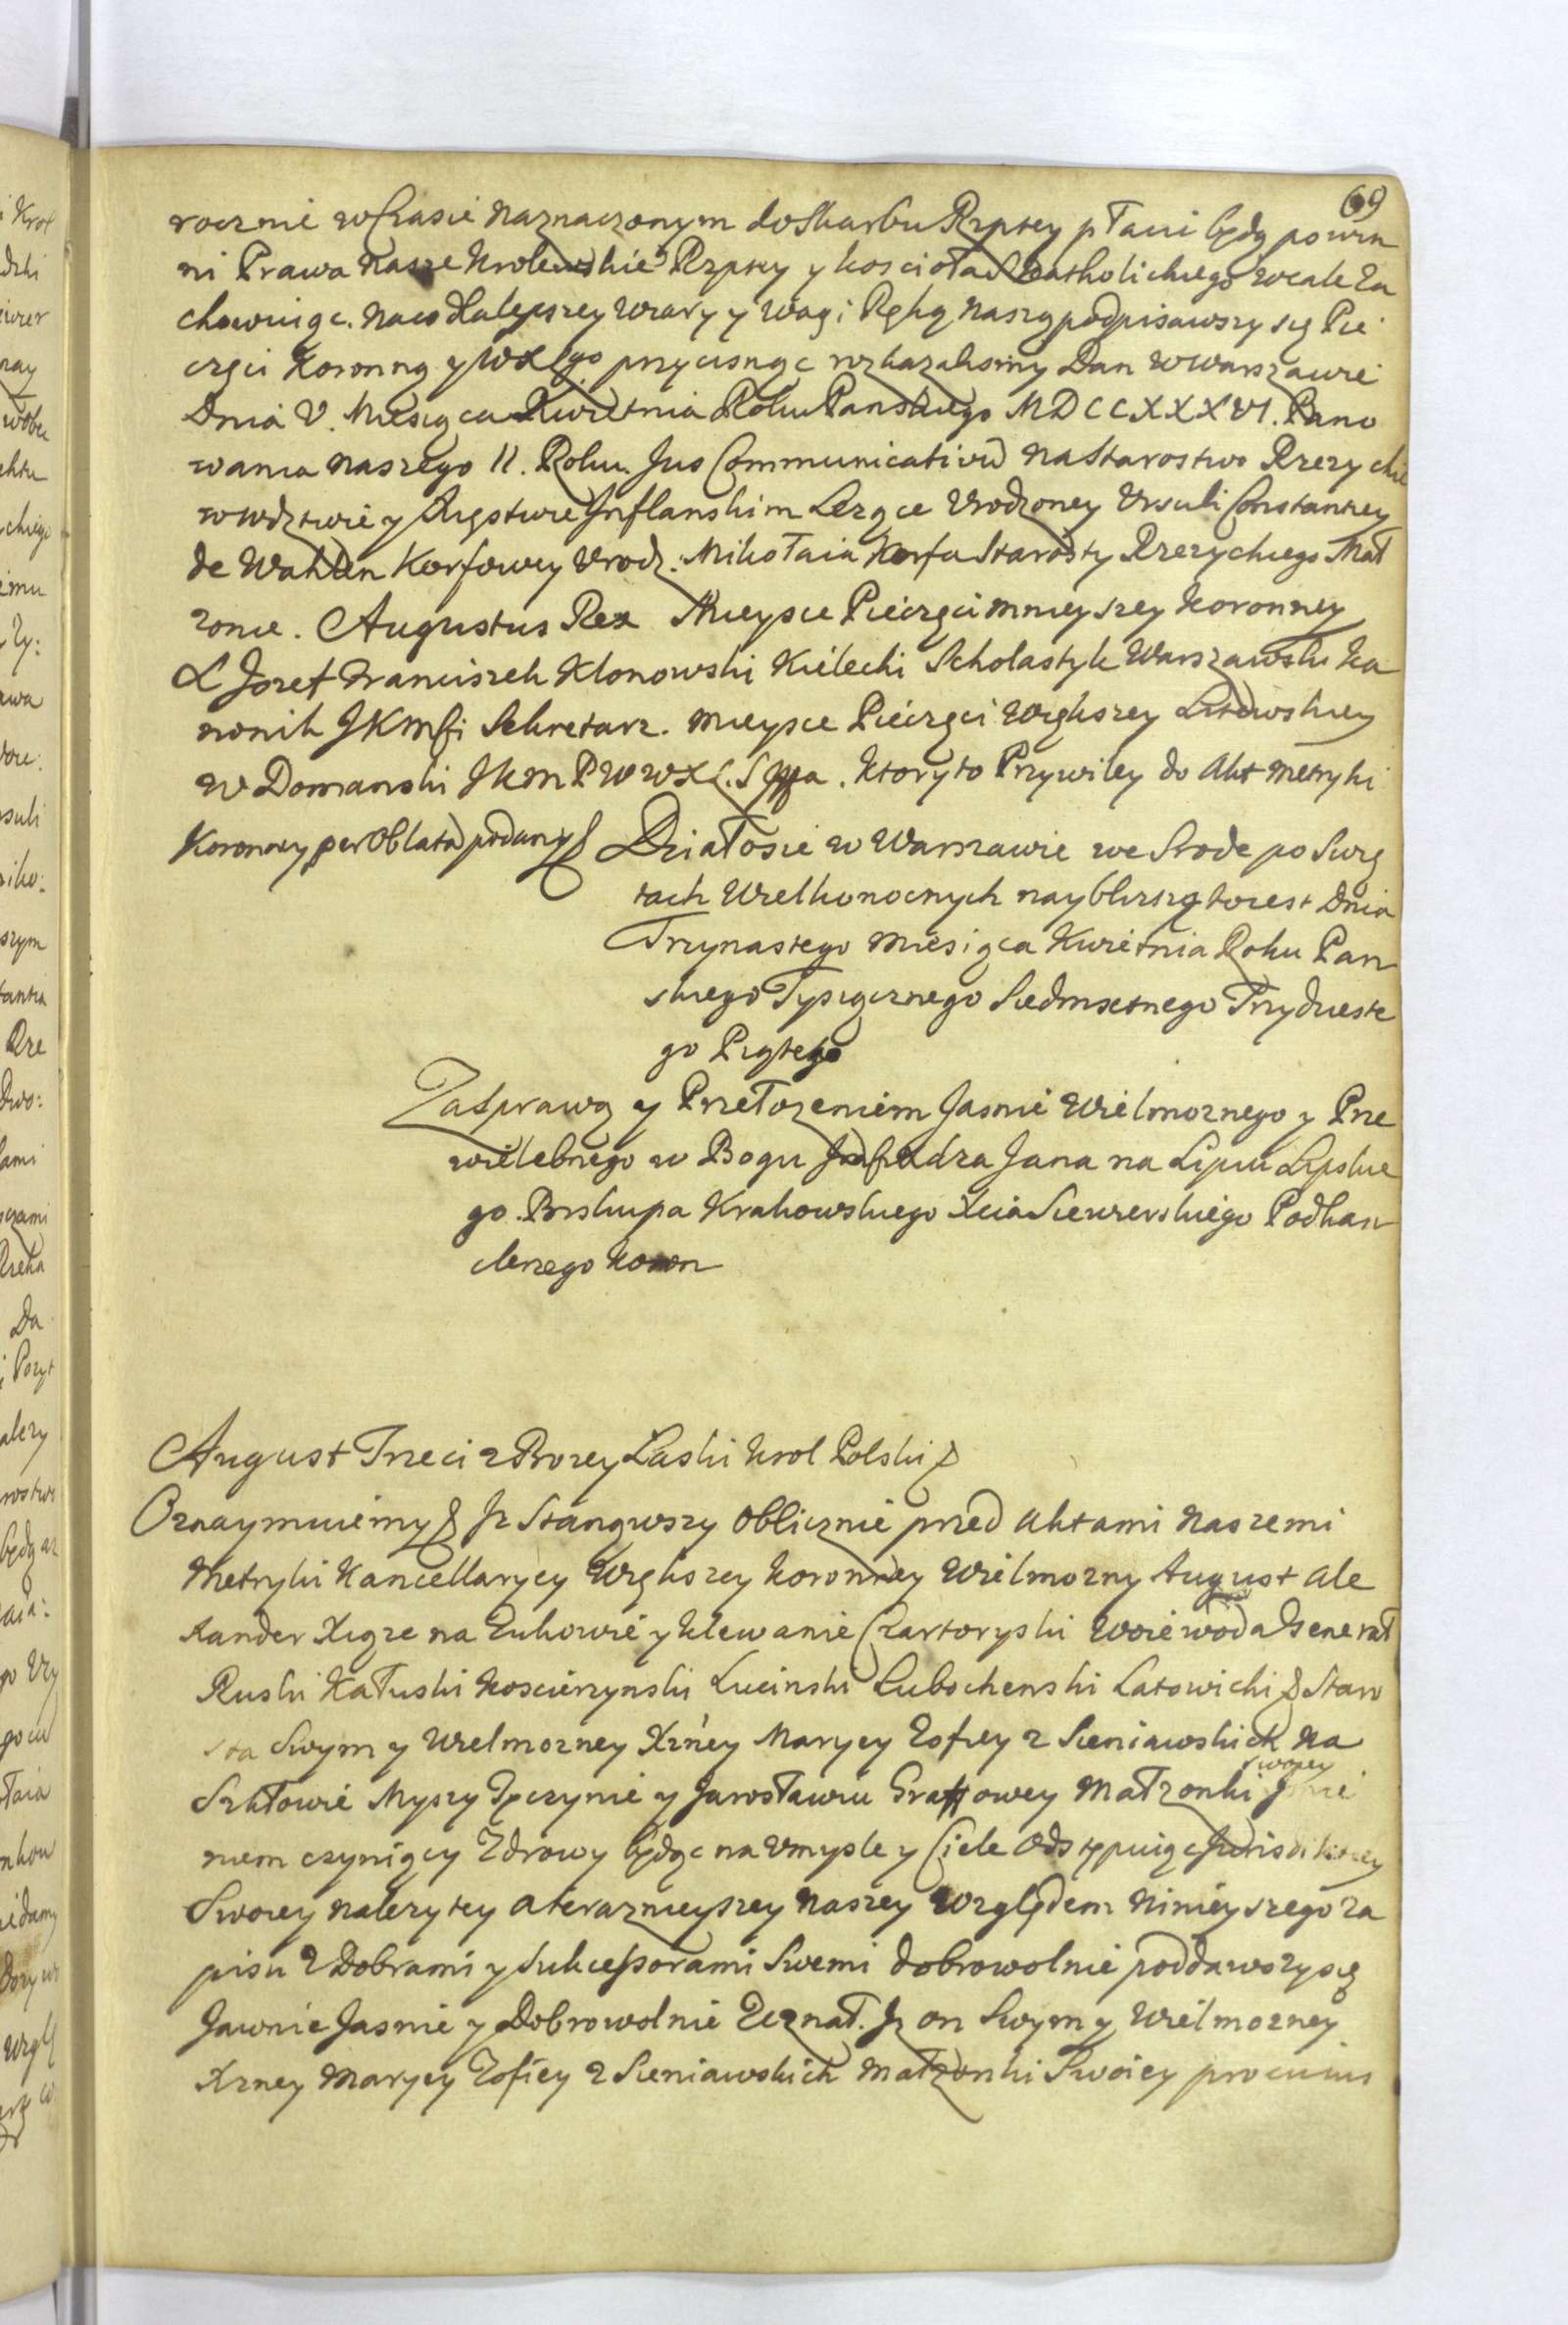 69
rocznie w Czasie naznaczonym do Skarbu Rzptey płacić będą powin
ni Prawa nasze Krolewskie Rzptey y koscioła S Katholickiego wcale za
chowuiąc. Na co dla lepszey wiary y wagi Ręką naszą podpisawszy się Pie
częci Koronną y WXLgo przycisnąc rozkazalismy Dan w Warszawie
Dnia V. Miesiąca Kwietnia Roku Panskiego MDCCXXXVI. Pano
wania naszego II. Roku. Jus Communicativũ na Starostwo Rzezyckie
w wdztwie y Xięstwie Inflanskim Lezące Urodzoney Ursuli Constantiey
de Wahlen Korfowey Urodz: Mikołaia Korfa Starosty Rzezyckiego Mał
zonie. Augustus Rex Mieysce Pieczęci mnieyszey koronney
L Jozef Franciszek Klonowski Kielecki Scholastyk Warszawski Ka
nonik JKMści Sekretarz. Mieysce Pieczęci Większey Litewskiey
W Domanski JKM P W W X L. S mpa. Ktory to Przywiley do Akt Metryki
Koronney per Oblatã podany &
Działo sie w Warszawie we Srodę po Swię
tach Wielkonocnych naybliższą to iest Dnia
Trzynastego Miesiąca Kwietnia Roku Pan
skiego Tysiącznego Siedmsetnego Trzydzieste
go Piątego
Za Sprawą y Przełozeniem Jasnie Wielmoznego y Prze
wielebnego w Bogu Xiędza Jana na Lipiu Lipskie
go. Biskupa Krakowskiego Xcia Siewierskiego Podkan
clerzego Koron
August Trzeci z Bozey Łaski Krol Polski &
Oznaymuiemy & Iz Stanąwszy oblicznie przed Aktami naszemi
Metryki Kancellaryey Większey koronney Wielmozny August Ale
xander Xiąze na Zukowie y Klewanie Czartoryski Woiewoda Generał
Ruski Kałuski Koscierzynski Lucinski Lubochenski Latowicki & Staro
sta Swym y Wielmozney Xzney Maryey Zofiey z Sieniawskich na
Szkłowie Myszy Tęczynie y Jarosławiu Graffowey Małzonki Swoiey Jmie
niem czyniący Zdrowy będąc na Umysle y Ciele Odstępuiąc Jurisdikciey
Swoiey nalezytey a terazneyszey naszey Względem ninieyszego za
pisu z Dobrami y Sukcessorami Swemi dobrowolnie poddawszy się
Jawnie Jasnie y Dobrowolnie Zeznał. Iz on Swym y Wielmozney
Xzney Maryey Zofiey z Sieniawskich Małzonki Swoiey